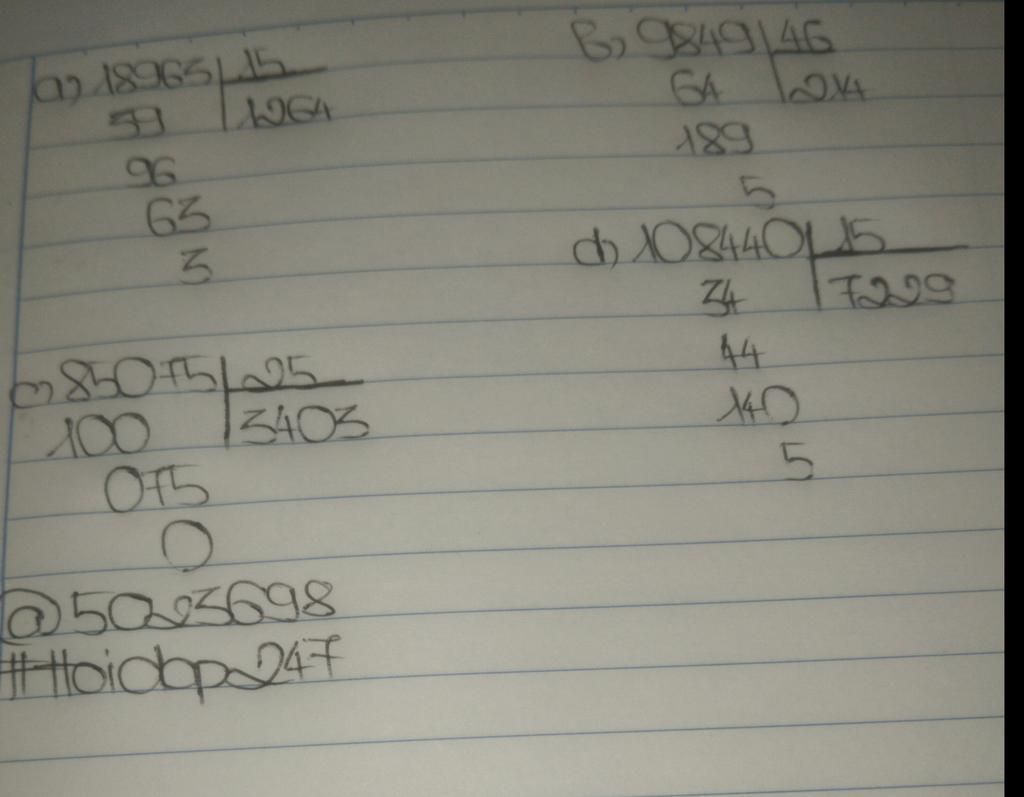 a) 18963 15
39 1264
96
63
3
b) 9849 46
64 214
189
5
c) 85075 25
100 3403
075
0
d) 108440 15
34 7229
44
140
5
@5023698
#Hoidap247